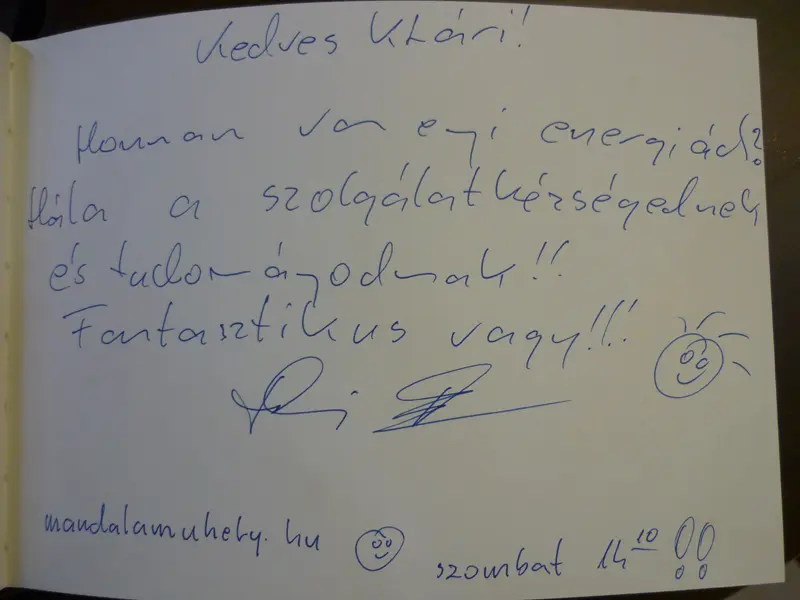 Kedves Klári!
Honnan van enyi energiád?
Hála a szolgálatkérségednek
és tudományodnak!!
Fantasztikus vagy!!!
mandalamuhely.hu
szombat 14 10 !!